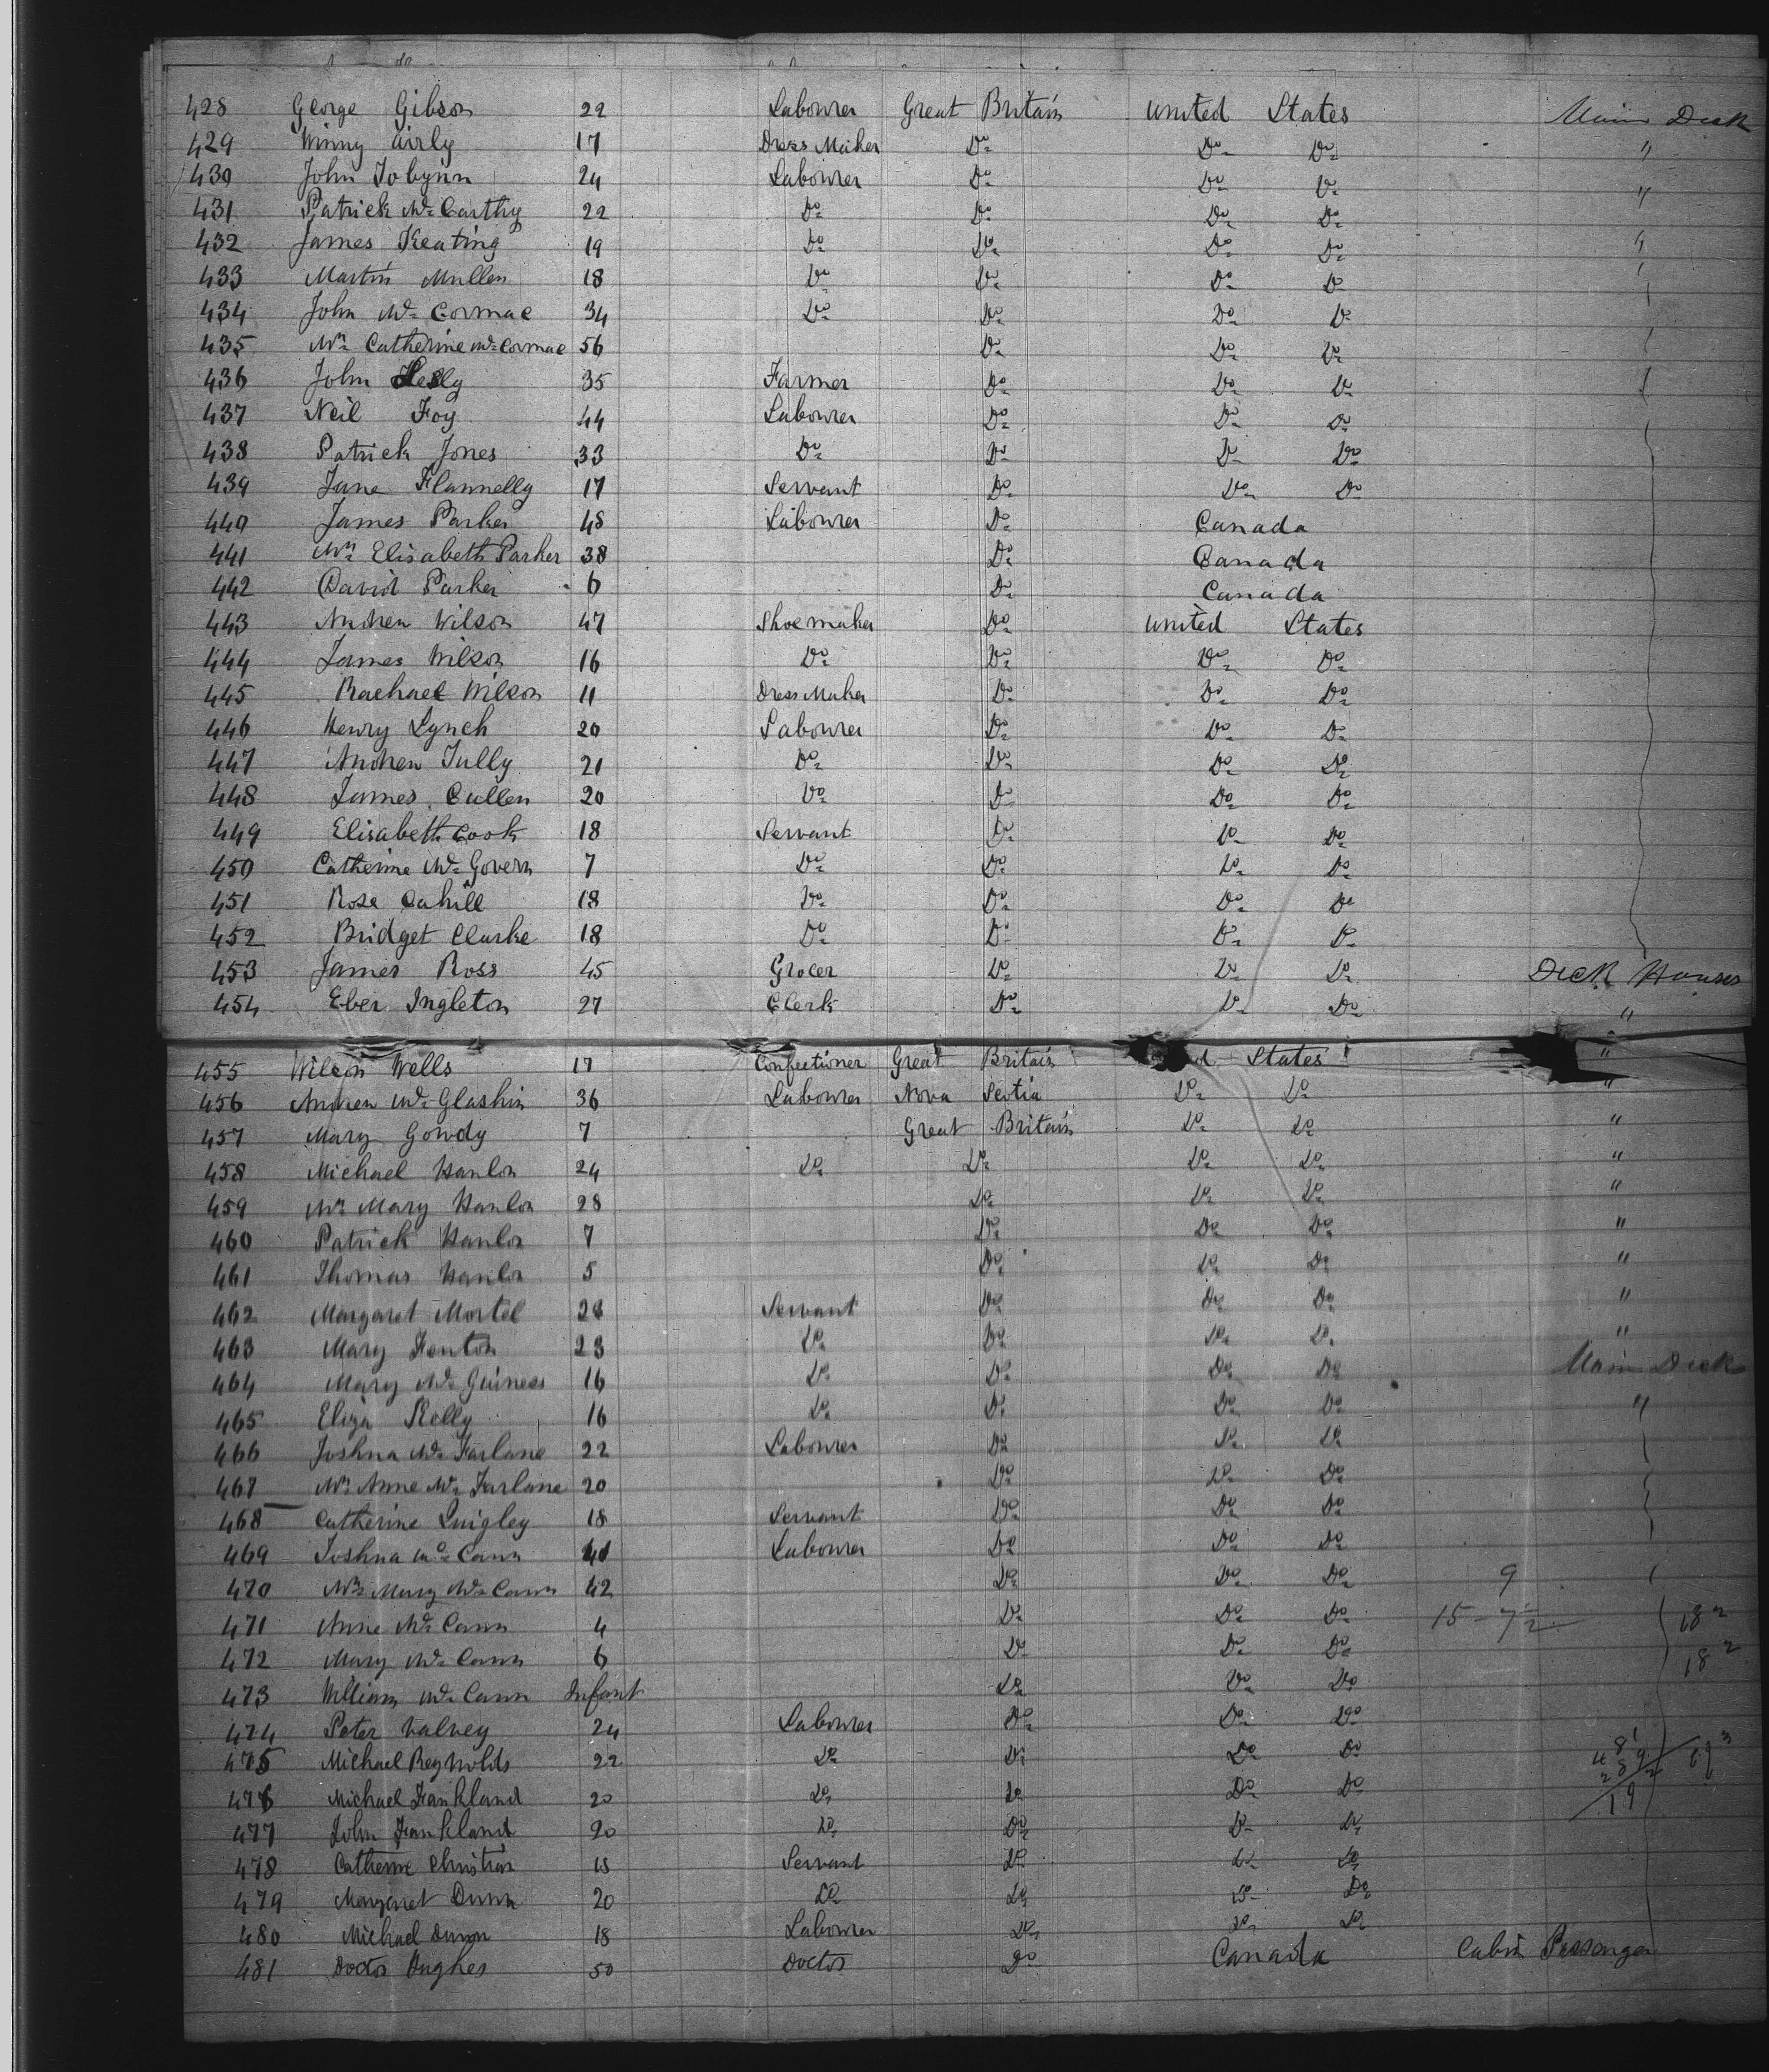 428 George Gibson 22 Labourer Great Britain United States Main Deck
429 Winny Airly 17 Dress Maker Do Do Do "
430 John Tobynn 24 Labourer Do Do Do "
431 Patrick Mc Carthy 22 Do Do Do Do
432 James Keating 19 Do Do Do Do "
433 Martin Mullen 18 Do Do Do Do
434 John Mc Cormac 34 Do Do Do Do
435 Mrs Catherine Mc Cormac 56 Do Do Do
436 John 35 Farmer Do Do Do
437 Neil Foy 44 Labourer Do Do Do
438 Patrick Jones 33 Do Do Do Do
439 Jane Flannelly 17 Servant Do Do Do
440 James Parker 48 Labourer Do Canada
441 Mrs Elisabeth Parker 38 Do Canada
442 David Parker 6 Do Canada
443 Andrew Wilson 47 Shoemaker Do United States
444 James Wilson 16 Do Do Do Do
445 Rachael Wilson 11 Dress Maker Do Do Do
446 Henry Lynch 20 Labourer Do Do Do
447 Andrew Tully 21 Do Do Do Do
448 James Cullen 20 Do Do Do Do
449 Elisabeth Cook 18 Servant Do Do Do
450 Catherine Mc Govern 7 Do Do Do Do
451 Rose Cahill 18 Do Do Do Do
452 Bridget Clarke 18 Do Do Do Do
453 James Ross 45 Grocer Do Do Do Deck Houses
454 Eber Ingleton 27 Clerk Do Do Do "
455 Wilson Wells 17 Confectioner Great Britain States "
456 Andrew Mc Glashin 36 Labourer Nova Scotia Do Do "
457 Mary Gowdy 7 Great Britain Do Do "
458 Michael Hanlon 24 Do Do Do Do "
459 Mrs Mary Hanlon 28 Do Do Do "
460 Patrick Hanlon 7 Do Do Do "
461 Thomas Hanlon 5 Do Do Do "
462 Margaret Mortel 28 Servant Do Do Do "
463 Mary Fenton 23 Do Do Do Do "
464 Mary Mc Guiness 16 Do Do Do Do Main Deck
465 Eliza Kelly 16 Do Do Do Do "
466 Joshua Mc Farlane 22 Labourer Do Do Do
467 Mrs Anne Mc Farlane 20 Do Do Do
468 Catherine Quigley 18 Servant Do Do Do
469 Joshua Mc Cann Labourer Do Do Do
470 Mrs Mary Mc Cann 42 Do Do Do 9
471 Anne Mc Cann 4 Do Do Do 15 - 7½ 18 2
472 Mary Mc Cann 6 Do Do Do 18 2
473 William Mc Cann Infant Do Do Do
474 Peter Valvey 24 Labourer Do Do Do
475 Michael Reynolds 22 Do Do Do Do
476 Michael Frankland 20 Do Do Do Do 19
477 John Frankland 20 Do Do Do Do
478 Catherine Christian 18 Servant Do Do Do
479 Margaret Dunn 20 Do Do Do Do
480 Michael Dunn 18 Labourer Do Do Do
481 Doctor Hughes 50 Doctor Do Canada Cabin Passenger